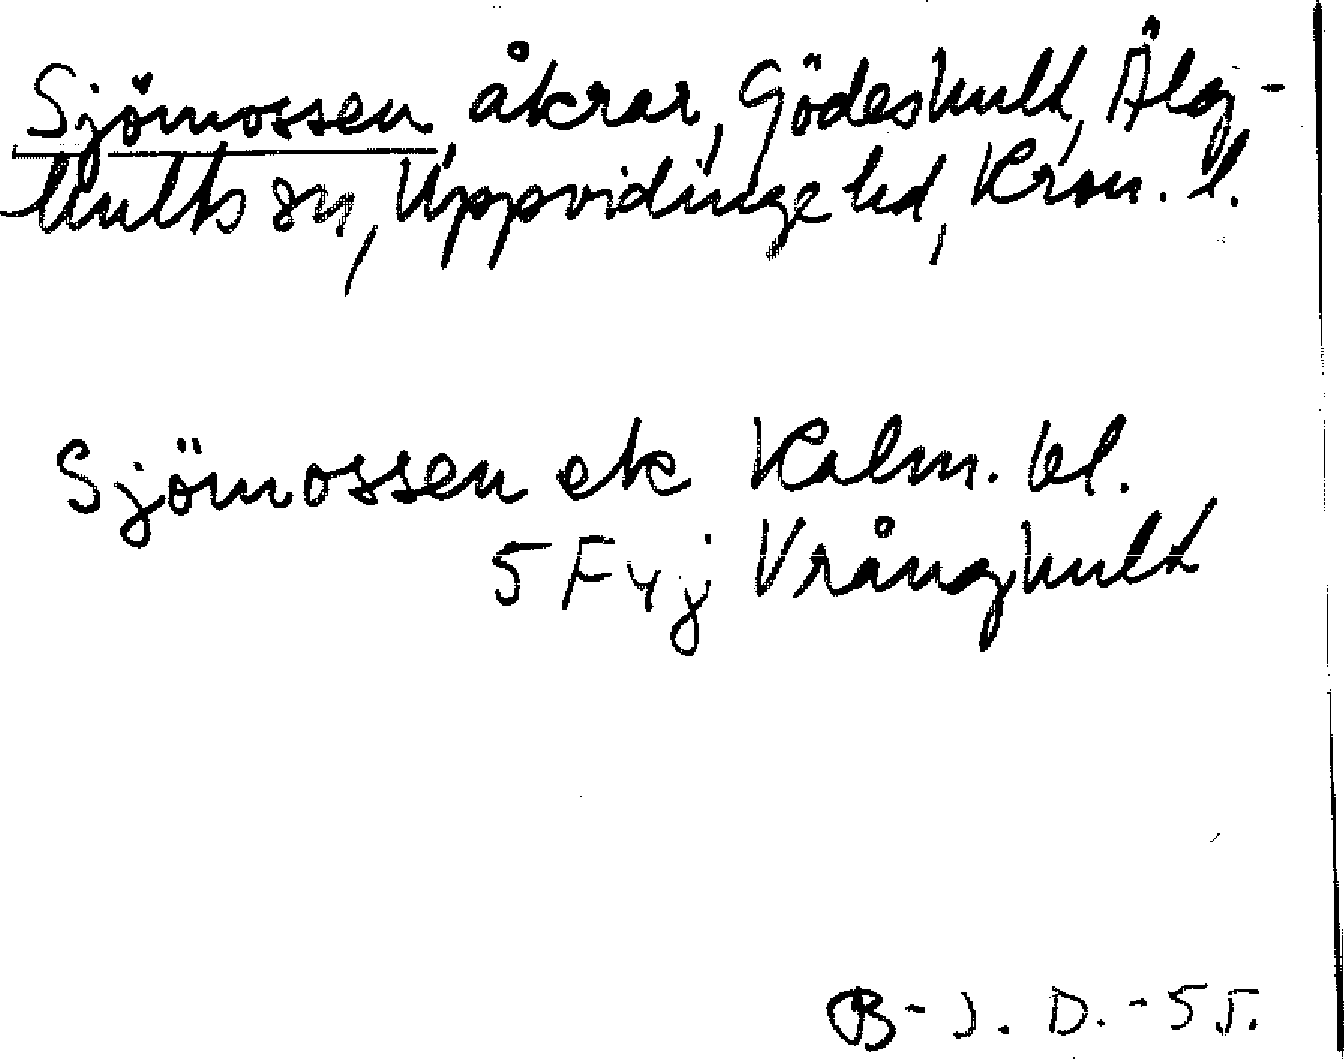 Sjömossen, åkrar, Gödeshult, Älg-
hults sn, Uppvidinge hd, Kron. l.
Sjömossen ek Kalm. bl.
5 F 4 j Vrånghult
B-J. D. -55.